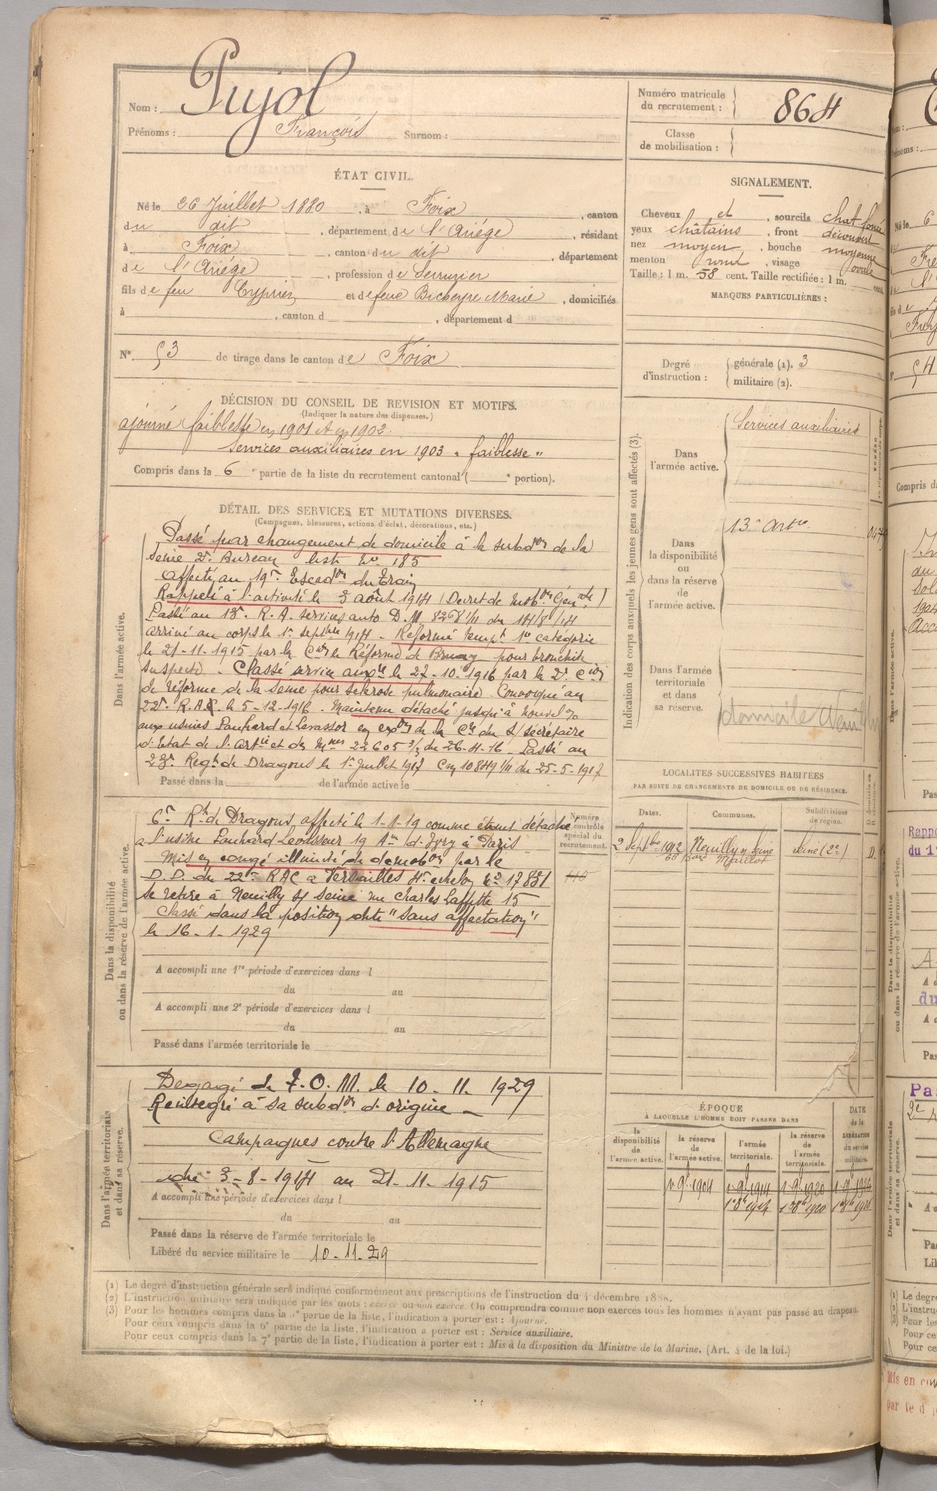 Nom : Pujol
Prénoms : François Surnom :
Numéro matricule du recrutement : 864
Classe de mobilisation :
ÉTAT CIVIL.
Né le 26 Juillet 1880, à Foix, canton
du dit, département de l'Ariège, résidant
à Foix, canton du dit, département
de l'Ariège, profession de Serrurier
fils de feu Cyprien et de feue Bicheyre Marie, domiciliés
à , canton d , département d
N° 53 de tirage dans le canton de Foix
SIGNALEMENT.
Cheveux et, sourcils chat. foncé
yeux châtains, front découvert
nez moyen, bouche moyenne
menton rond, visage ovale
Taille : 1 m. 58 cent. Taille rectifiée : 1 m. cent.
MARQUES PARTICULIÈRES :
Degré d'instruction : générale (1). 3
militaire (2).
DÉCISION DU CONSEIL DE REVISION ET MOTIFS.
(Indiquer la nature des dispenses.)
ajourné faiblesse en 1901 et en 1902.
Services auxiliaires en 1903 « faiblesse »
Compris dans la 6e partie de la liste du recrutement cantonal ( e portion).
DÉTAIL DES SERVICES ET MUTATIONS DIVERSES.
(Campagnes, blessures, actions d'éclat, décorations, etc.)
Dans l'armée active.
Passé par changement de domicile à la subdon de la
Seine 2e Bureau liste No 185
Affecté au 19e Escadon du Train
Rappelé à l'activité le 3 août 1914 (Décret de Mobon Génale)
Passé au 13e R.A. services auto D.M. 8268 1/11 du 14/8/14
arrivé au corps le 1er septbre 1914 - Réformé tempt 1re catégorie
le 21-11-1915 par la Con de Réforme de pour bronchite
suspecte. Classé service auxre le 27-10-1916 par la 2e Con
de réforme de la Seine pour sclérose pulmonaire. Convoqué au
22e R.A.C. le 5-12-1916. Maintenu détaché jusqu'à nouvel o/
aux usines Panhard et Levassor en de la Cre du S/ secrétaire
d'Etat de l'Artie et des Mons 22605 3/5 du 26-4-16. Passé au
23e Regt de Dragons le 1er Juillet 1917 Cre 10849 1/11 du 25-5-1917
Passé dans la de l'armée active le
Dans la disponibilité ou dans la réserve de l'armée active.
6e Rt de Dragons, affecté le 1-1-19 comme étant détaché
à l'usine Panhard Levassor 19 Ave d'Ivry à Paris
Mis en congé illimité de démobon par le
D.D. du 22e RAC à Versailles 4e echelon No 17851
se retire à Neuilly s/ Seine rue Charles Laffitte 15
Classé dans la position dite "Sans affectation"
le 16-1-1929
A accompli une 1re période d'exercices dans l
du au
A accompli une 2e période d'exercices dans l
du au
Passé dans l'armée territoriale le
Numéro au contrôle spécial du recrutement.
Dans l'armée territoriale et dans sa réserve.
Dégagé de T.O.M. le 10-11-1929
Réintégré à sa subdon d'origine
Campagnes contre l'Allemagne
3-8-1914 au 21-11-1915
A accompli une période d'exercices dans l
du au
Passé dans la réserve de l'armée territoriale le
Libéré du service militaire le 10-11-29
Indication des corps auxquels les jeunes gens sont affectés (3).
Dans l'armée active. Services auxiliaires
Dans la disponibilité ou dans la réserve de l'armée active. 13e Artie
Dans l'armée territoriale et dans sa réserve.
LOCALITÉS SUCCESSIVES HABITÉES
PAR SUITE DE CHANGEMENTS DE DOMICILE OU DE RÉSIDENCE.
Dates. Communes. Subdivisions de région.
2 Septbre 1912 Neuilly s/ Seine Seine (2e)
60 Bard Maillot
ÉPOQUE
À LAQUELLE L'HOMME DOIT PASSER DANS
la disponibilité de l'armée active. la réserve de l'armée active. l'armée territoriale. la réserve de l'armée territoriale. DATE de la LIBÉRATION du service militaire.
(1) Le degré d'instruction générale sera indiqué conformément aux prescriptions de l'instruction du 4 décembre 1889.
(2) L'instruction militaire sera indiquée par les mots : exercé ou non exercé. On comprendra comme non exercés tous les hommes n'ayant pas passé au drapeau.
(3) Pour les hommes compris dans la partie de la liste, l'indication à porter est : Ajourné.
Pour ceux compris dans la 6e partie de la liste, l'indication à porter est : Service auxiliaire.
Pour ceux compris dans la 7e partie de la liste, l'indication à porter est : Mis à la disposition du Ministre de la Marine. (Art. 4 de la loi.)